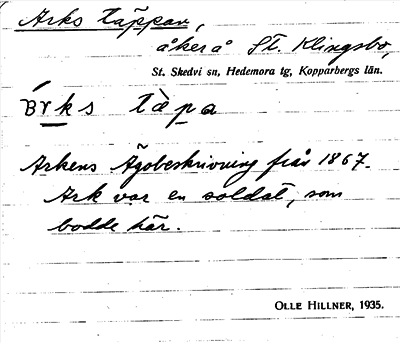 Arks täppan,
åker å St. Klingsbo,
St. Skedvi sn, Hedemora tg, Kopparbergs län.
täpa
Arkens Ägobeskrivning från 1867.
Ark var en soldat, som
bodde här.
OLLE HILLNER, 1935.